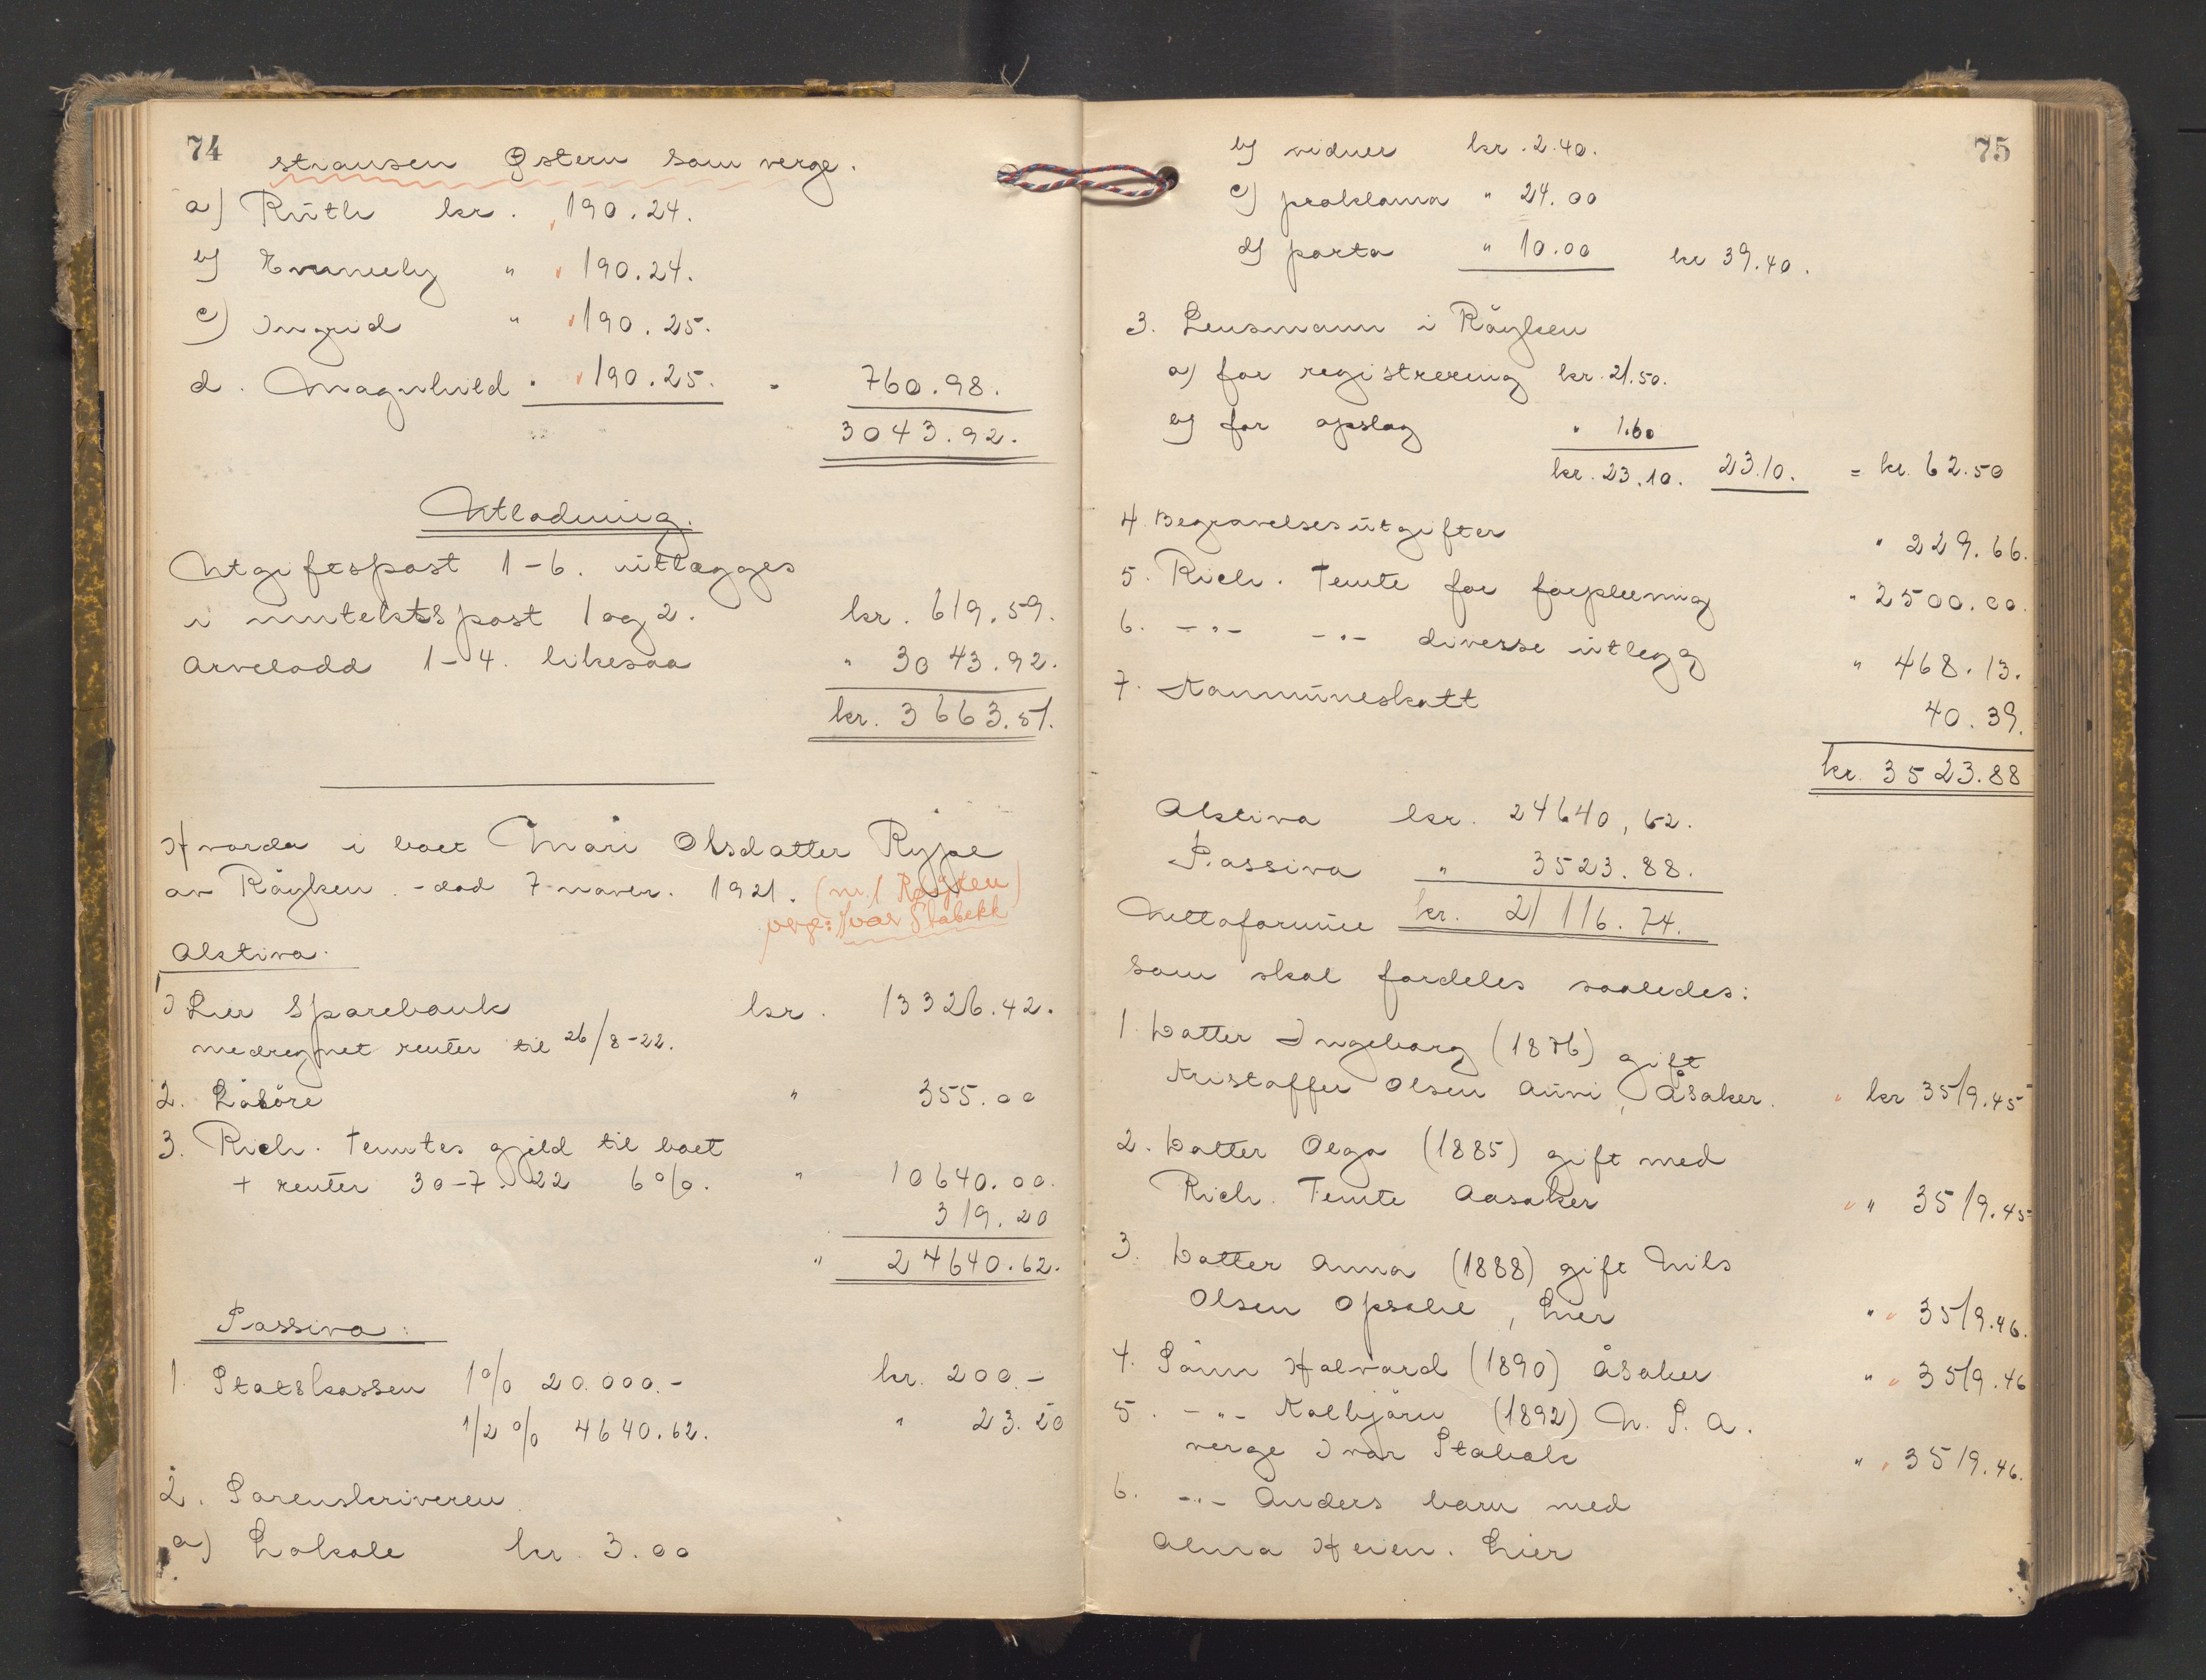 74
stiansen Østern som verge.
a) Ruth kr. 190.24.
b) Emmely " 190.24.
c) Ingrid " 190.25.
d. Magnhild " 190.25. - 760.98.
3043.92.
Utlodning.
Utgiftspost 1-6. utlægges
i inntektspost 1 og 2. kr. 619.59.
Arvelodd 1-4. likesaa " 3043.92.
kr. 3663.51.
Hvorda i boet Mari Olsdatter Rype
av Røyken. - død 7 novbr. 1921. (nr. 1 Røyken)
verge: Ivar Stabekk
Aktiva.
1 Lier Sparebank kr. 13326.42.
medregnet renter til 26/8-22.
2. Løsøre " 355.00
3. Rich. Temtes gjeld til boet
+ renter 30-7. 22 6%. " 10640.00.
319.20
" 24640.62.
Passiva:
1. Statskassen 1% 20.000.- kr. 200.-
1/2% 4640.62. " 23.20
2. Sorenskriveren
a) Lokale kr. 3.00
75
b) vidner kr. 2.40.
c) proklama " 24.00
d) porto " 10.00 kr 39.40.
3. Lensmann i Røyken
a) for registrering kr. 21.50.
b) for opslag " 1.60
kr. 23.10. 23.10. = kr. 62.50
4. Begravelsesutgifter " 229.66.
5. Rich. Temte for forpleining " 2500.00.
6. -"- -"- diverse utlegg " 468.13.
7. Kommuneskatt 40.39.
kr. 3523.88
Aktiva kr. 24640,62.
Passiva " 3523.88.
Nettoformue kr. 21116.74.
som skal fordeles saaledes:
1. Datter Ingeborg (1876) gift
Kristoffer Olsen Auvi, Åsaker. kr 3519.45
2. Datter Olga (1885) gift med
Rich. Temte Aasaker " 3519.45
3. Datter Anna (1888) gift Nils
Olsen Opsahl, Lier " 3519.46.
4. Sønn Halvard (1890) Åsaker " 3519.46
5. -"- Kolbjørn (1892) U. S. A.
verge Ivar Stabæk " 3519.46.
6. -"- Anders barn med
Alma Heien. Lier